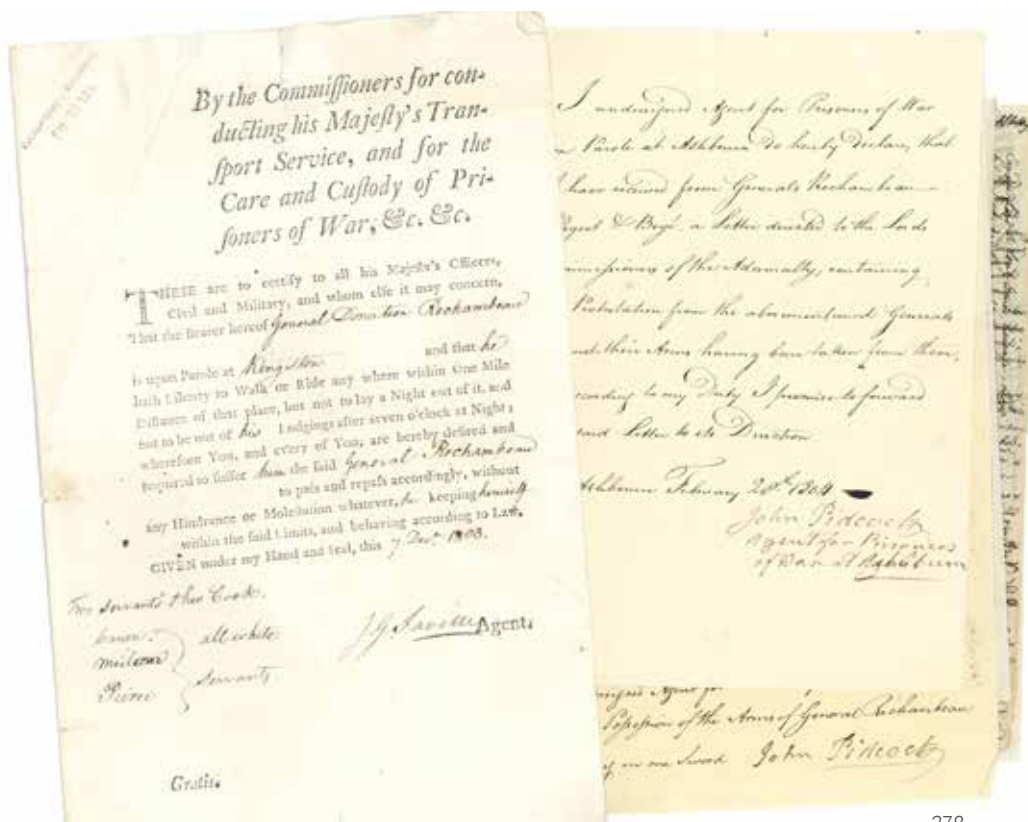 By the Commiſſioners for con-
ducting his Majeſty's Tran-
ſport Service, and for the
Care and Cuſtody of Pri-
ſoners of War, &c. &c.
THESE are to certify to all his Majeſty's Officers,
Civil and Military, and whom elſe it may concern,
That the Bearer hereof General Donatien Rochambeau
is upon Parole at Kingston and that he
hath Liberty to Walk or Ride any where within One Mile
Diſtance of that place, but not to lay a Night out of it, and
not to be out of his Lodgings after ſeven o'clock at Night;
wherefore You, and every of You, are hereby deſired and
required to ſuffer him the ſaid General Rochambeau
to paſs and repaſs accordingly, without
any Hindrance or Moleſtation whatever, he keeping himself
within the ſaid Limits, and behaving according to Law.
GIVEN under my Hand and Seal, this 7 Decr. 1803.
servants
all white
servants
Pierre
J G Saville Agent.
Gratis.
I undersigned Agent for Prisoners of War
Parole at Ashbourn do hereby declare, that
I have received from Generals Rochambeau
& Boyé, a Letter directed to the Lords
of the Admiralty, containing
Protestation from the abovementioned Generals
their Arms having been taken from them,
according to my Duty I promise to forward
said Letter to its Direction
Ashbourn February 20th. 1804
John Pidcock
Agent for Prisoners
of War at Ashbourn
Agent for
Possession of the Arms of General Rochambeau
one Sword John Pidcock
278